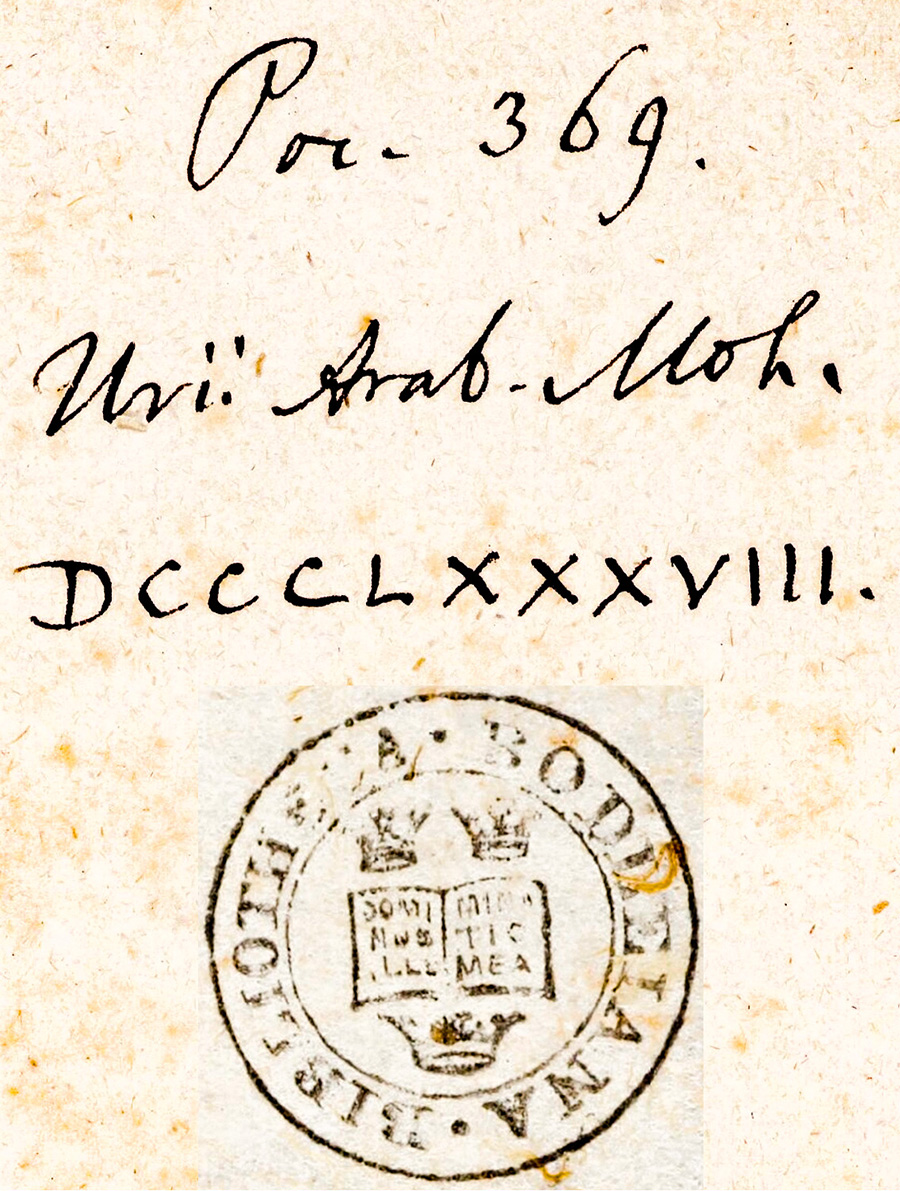 Poc. 369.
Urii Arab. Moh.
DCCCLXXXVIII.
BIBLIOTHECA · BODLEIANA ·
DOMI MINA
NUS TIO
ILLU MEA